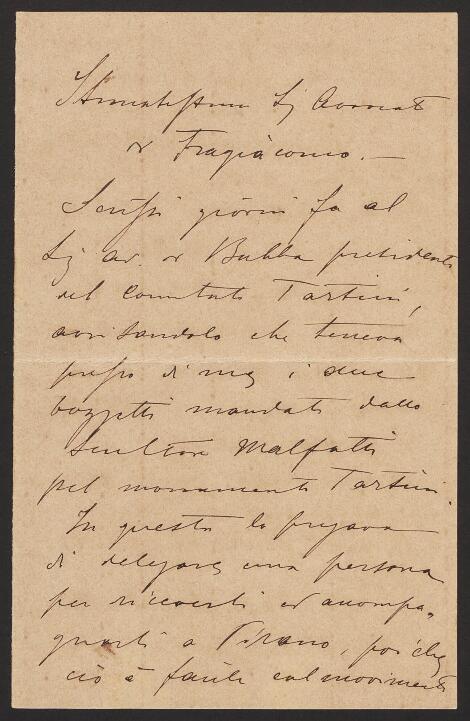 Stimatissimo Sig Avvocato
Dr Fragiacomo. —
Scrissi giorni fa al
Sig av. Dr Bubba presidente
del comitato Tartini,
avvisandolo che teneva
presso di me i due
bozzetti mandati dallo
scultore Malfatti
pel monumento Tartini.
In questa lo pregava
di delegare una persona
per riceverli ed accompa„
gnarli a Pirano, poiche
ciò è facile col movimento